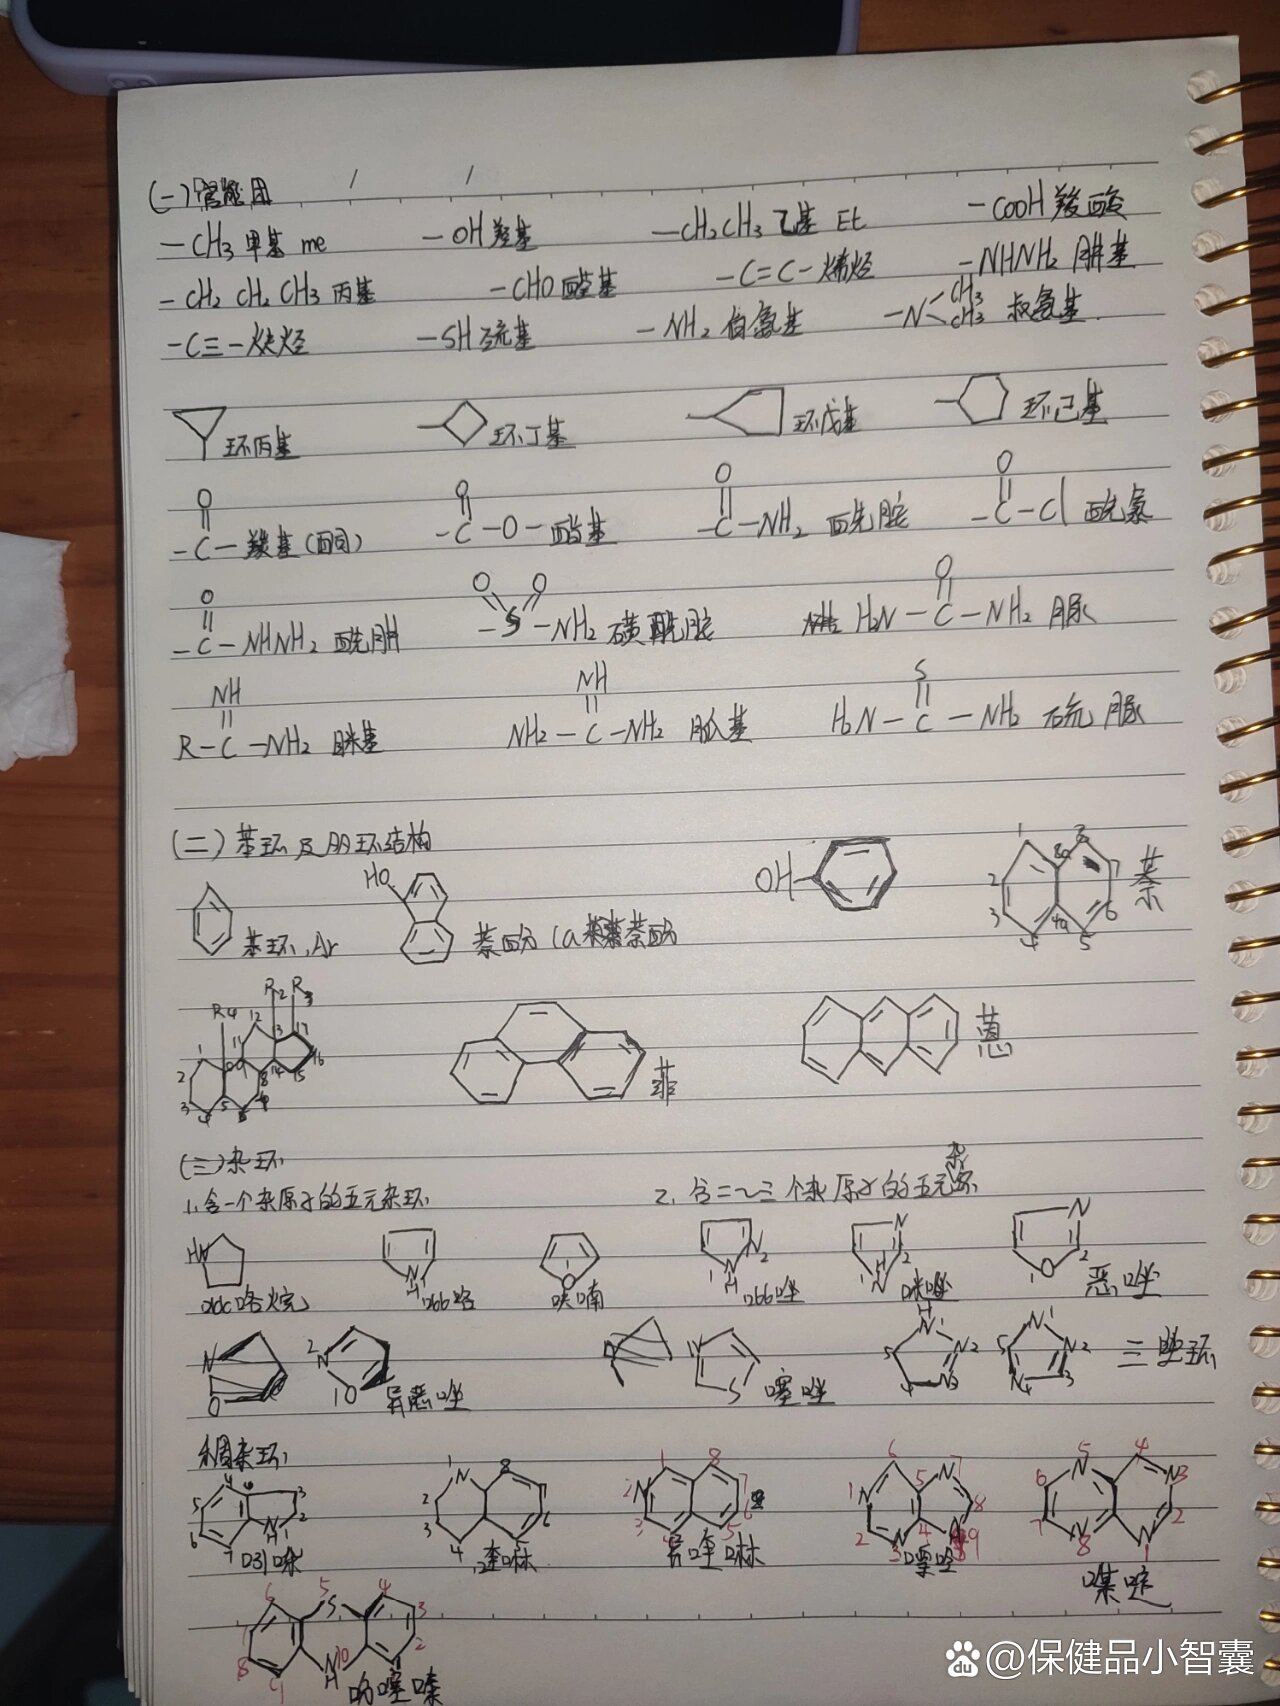 (一)官能团
-CH3 甲基 me -OH 羟基 -CH2CH3 乙基 Et -COOH 羧酸
-CH2 CH2 CH3 丙基 -CHO 醛基 -C=C- 烯烃 -NHNH2 肼基
-C≡-炔烃 -SH 巯基 -NH2 伯氨基 -N<CH3 CH3 叔氨基
环丙基 环丁基 环戊基 环己基
O O O O
-C- 羰基(酮) -C-O- 酯基 -C-NH2 酰胺 -C-Cl 酰氯
O O O O
-C-NHNH2 酰肼 -S-NH2 磺酰胺 H2N-C-NH2 脲
NH NH S
R-C-NH2 脒基 NH2-C-NH2 胍基 H2N-C-NH2 硫脲
(二)苯环及稠环结构
HO OH 1 8a 8 7 2 3 4 4a 5 6 萘
苯环,Ar 萘酚
R4 R2 R3
1 2 3 4 5 8 11 12 14 15 16 17
菲 蒽
(三)杂环
1.含一个杂原子的五元杂环 2.含二~三个杂原子的五元杂环
HN N H O N H 1 2 N N H 2 N O 1 2
吡咯烷 吡咯 呋喃 吡唑 咪唑 恶唑
N O 2 N 1 O 异恶唑 N S 噻唑 H N 1 N 2 N 3 4 5 N 1 N 2 3 N 4 5 三唑环
稠杂环
4 3 5 2 6 7 N H 1 吲哚
1 N 8 2 3 4 6 喹啉
1 8 2 N 7 3 6 5 异喹啉
6 N 7 1 N 5 8 2 N 3 4 9 嘌呤
5 N 4 6 N 3 7 2 N 8 N 1 蝶啶
6 5 S 4 3 8 9 10 N H 2 1 吩噻嗪
Bai du @保健品小智囊